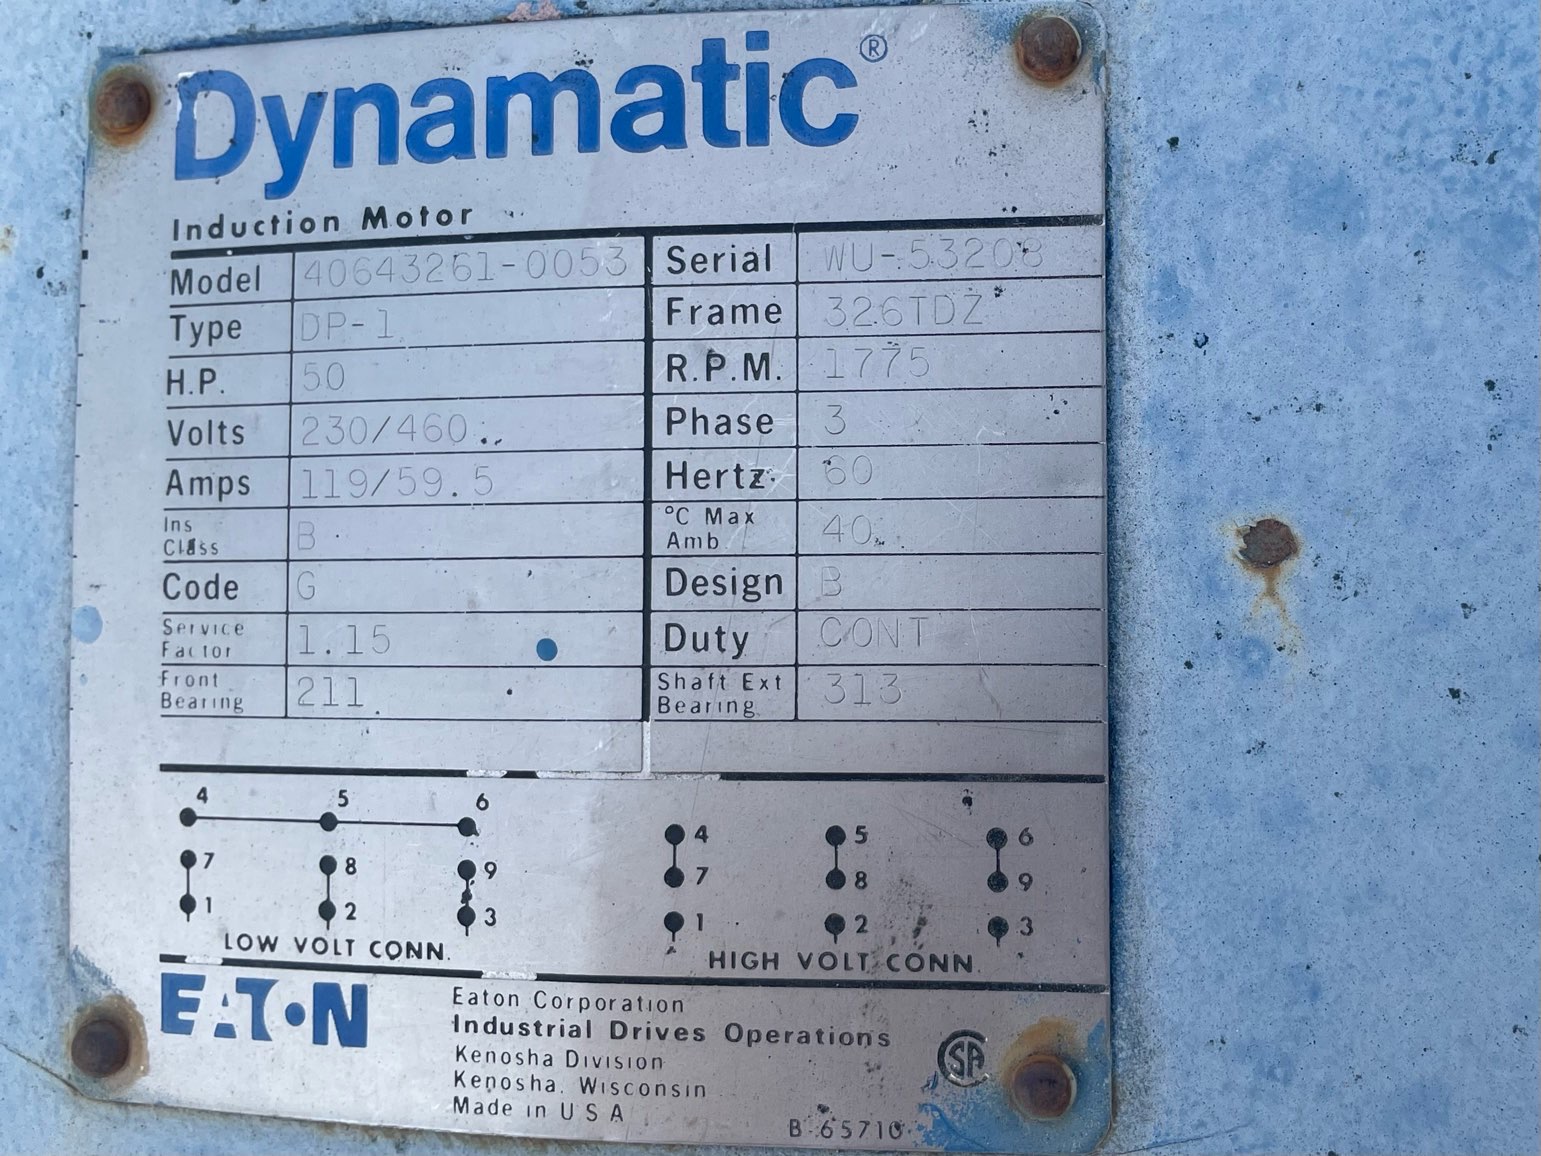 Dynamatic®
Induction Motor
Model 40643261-0053 Serial WU-53208
Type DP-1 Frame 326TDZ
H.P. 50 R.P.M. 1775
Volts 230/460 Phase 3
Amps 119/59.5 Hertz 60
Ins Class B °C Max Amb 40
Code G Design B
Service Factor 1.15 Duty CONT
Front Bearing 211 Shaft Ext Bearing 313
4 5 6
7 8 9
1 2 3
LOW VOLT CONN.
4 5 6
7 8 9
1 2 3
HIGH VOLT CONN.
EATON
Eaton Corporation
Industrial Drives Operations
Kenosha Division
Kenosha, Wisconsin
Made in U S A
SA
B 65710